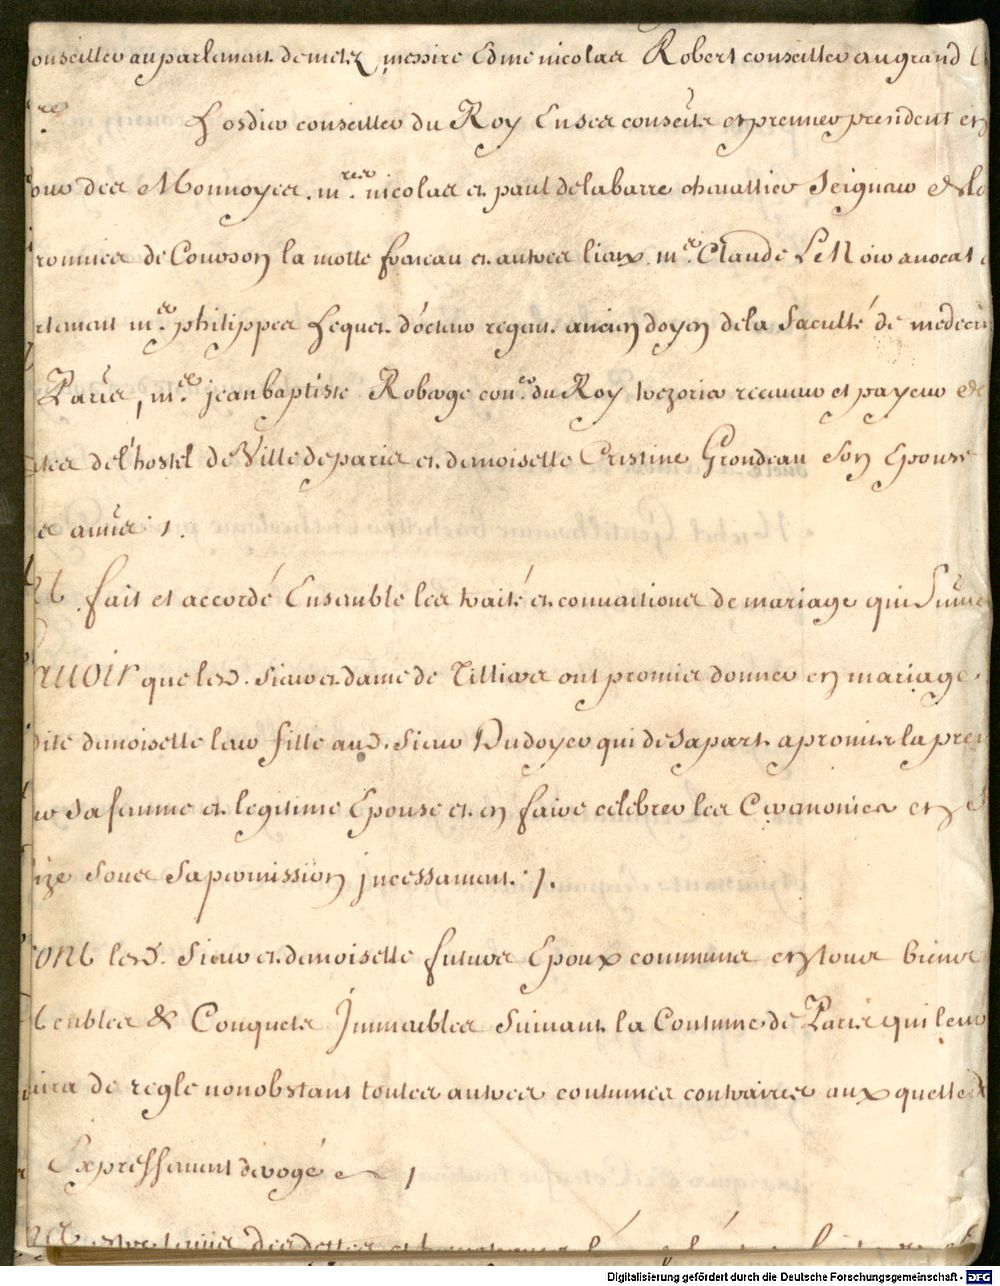 onseiller au parlement de metz, messire Edme nicolas Robert conseiller au grand
re Hosdier conseiller du Roy En ses conseils et premier president en
our des Monnoyes. mres nicolas et paul delabarre chevallier Seigneur de la
ronnies de Couvson la motte et autres lieux. me Claude Le Noir avocat
rlement me philippes Hequet docteur regent ancien doyen de la faculté de medecin
Paris, me jean baptiste Roberge coner du Roy trezorier receveur et payeur de
ntes de l'hostel de Ville de paris et demoiselle Cristine Grondeau Son Epouse
s amis 1.
nt fait et accordé Ensemble les traité et conventions de mariage qui Suive
avoir que lesd. Sieur et dame de Tilliers ont promis donner en mariage
dite demoiselle leur fille aud. Sieur Dudoyer qui de sa part a promis la pren
ur sa femme et legitime Epouse et en faire celebrer les Ceremonies en S
ize sous sa permission jncessament. 1.
ront lesd. Sieur et demoiselle futurs Epoux communs en tous biens
eubles & Conquets Jmmeubles Suivant la Coutume de Paris qui leur
vira de regle nonobstant toutes autres coutumes contraires aux quelle
Expressement derogé 1
estre tenus des dettes et
Digitalisierung gefördert durch die Deutsche Forschungsgemeinschaft - DFG